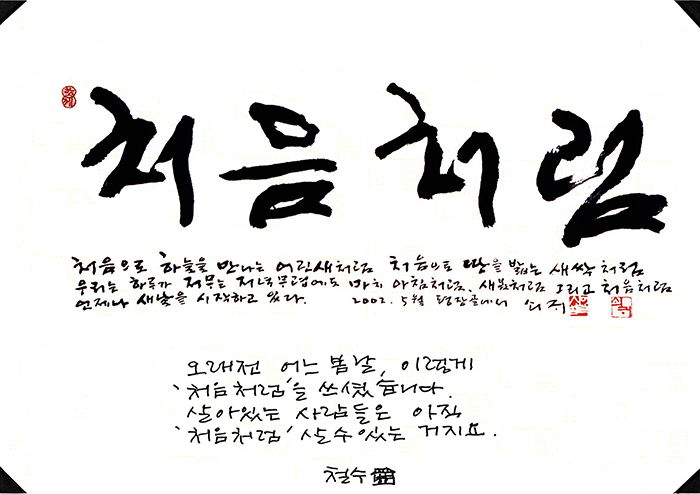 처음처럼
처음으로 하늘을 만나는 어린새처럼 처음으로 땅을 밟는 새싹처럼
우리는 하루가 저무는 저녁무렵에도 마치 아침처럼, 새봄처럼 그리고 처음처럼
언제나 새날을 시작하고 있다. 2002. 5월
오래전 어느 봄날, 이렇게
'처음처럼'을 쓰셨습니다.
살아있는 사람들은 아직
'처음처럼' 살 수 있는 거지요.
철수